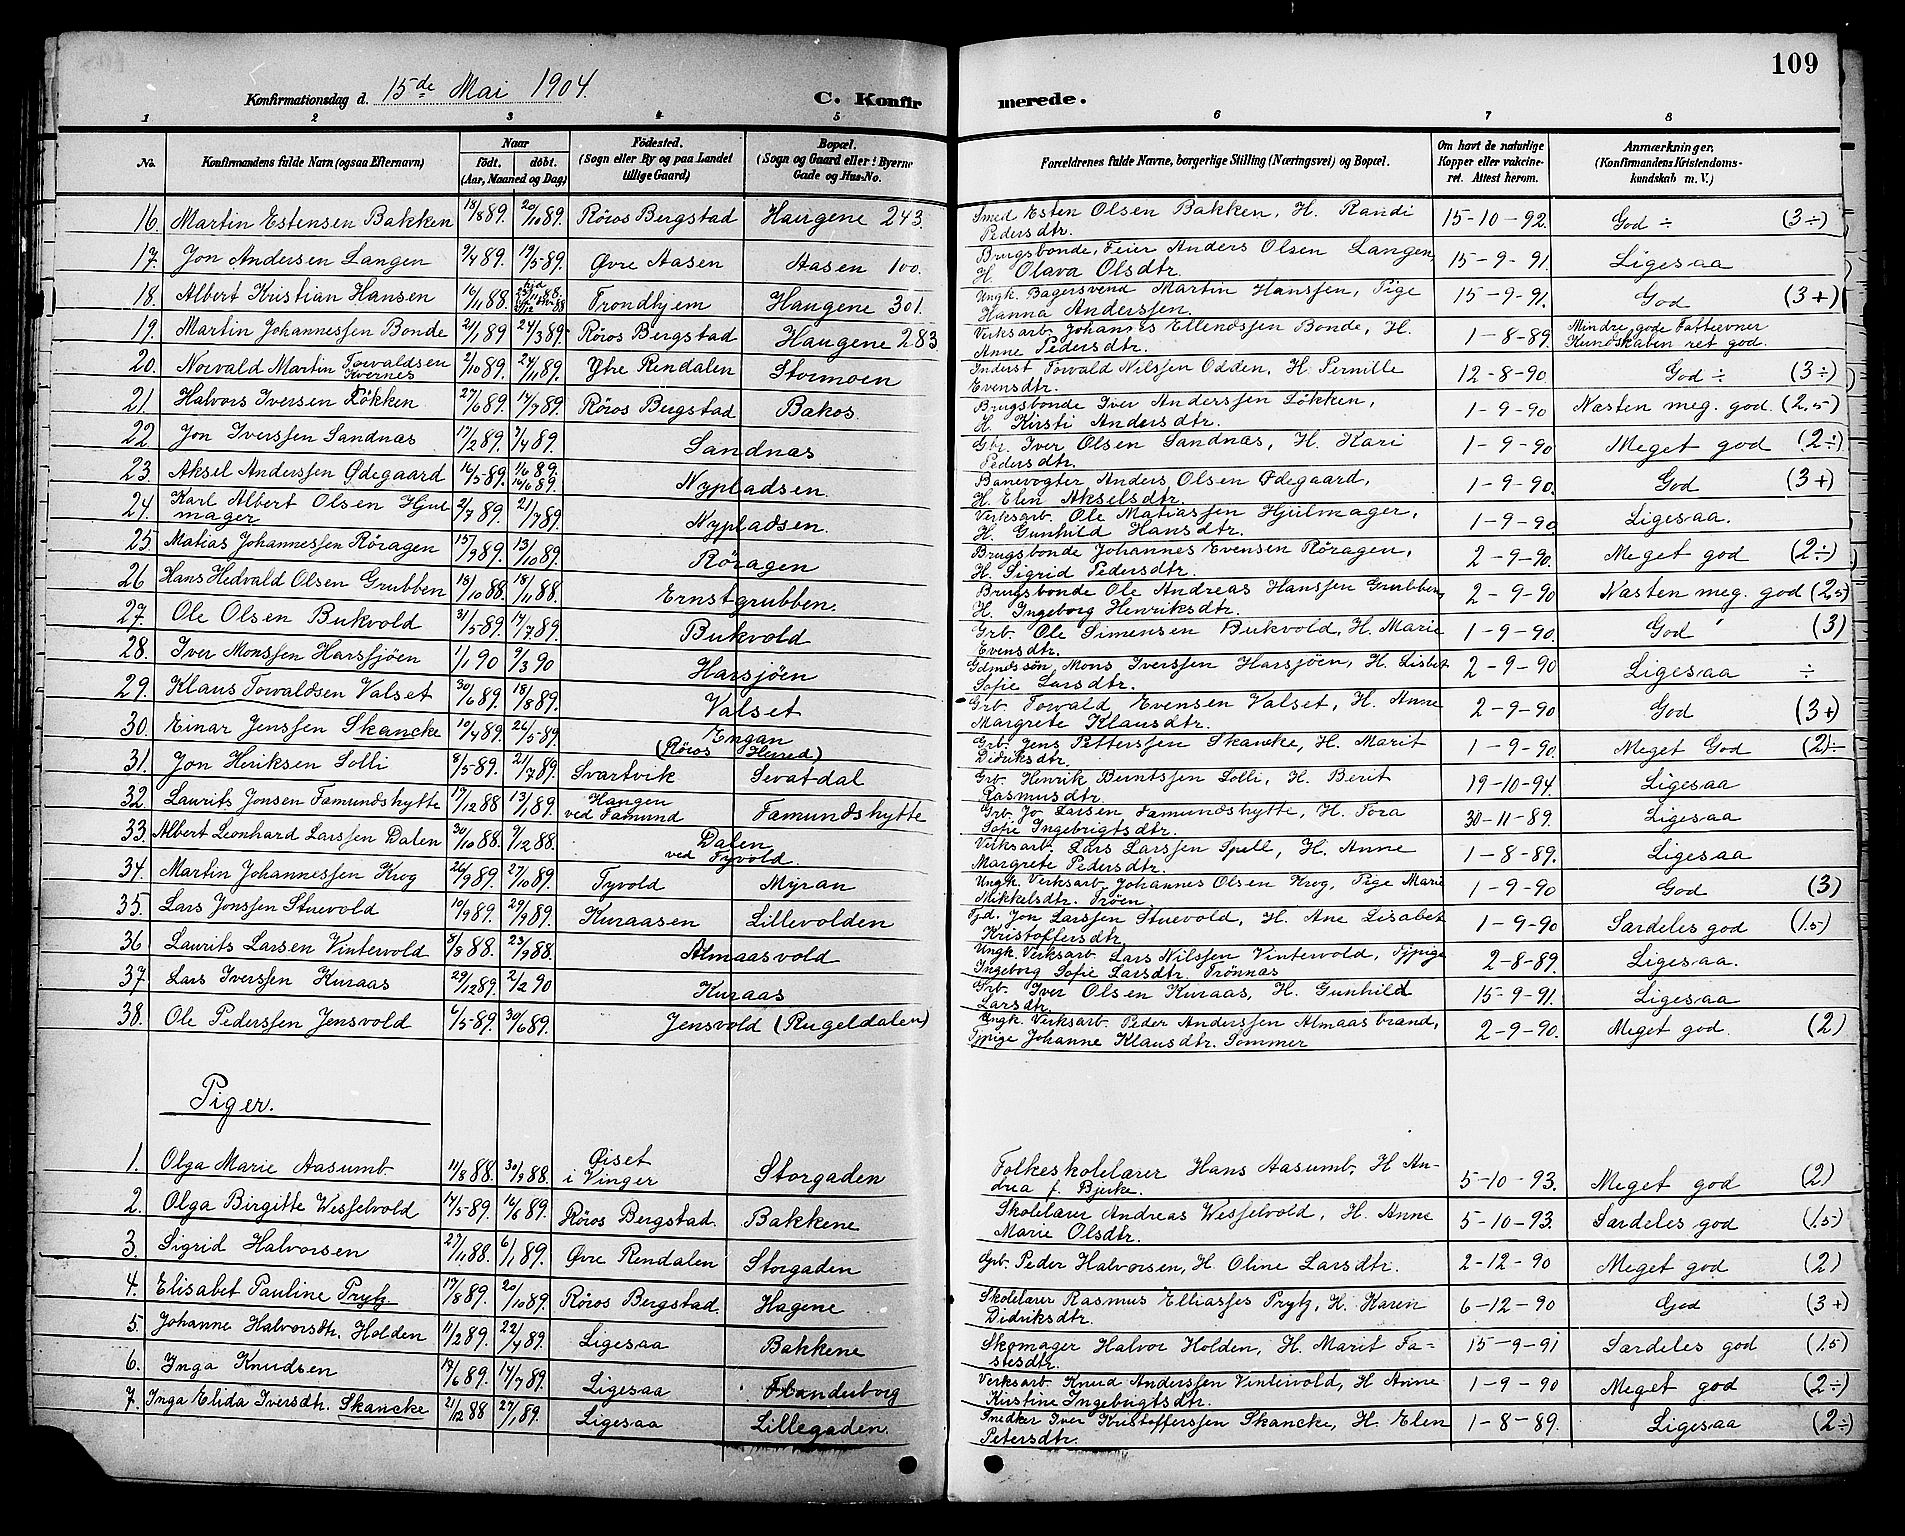 109
Konfirmationsdag d. 15de Mai 1904.
C. Konfirmerede.
1 2 3 4 5 6 7 8
No. Konfirmandens fulde Navn (ogsaa Efternavn) Naar født. døbt. (Aar, Maaned og Dag) Födested. (Sogn eller By og paa Landet tillige Gaard) Bopæl. (Sogn og Gaard eller i Byerne Gade og Hus-No. Forældrenes fulde Navne, borgerlige Stilling (Næringsvei) og Bopæl. Om havt de naturlige Kopper eller vakcineret. Attest herom. Anmærkninger, (Konfirmandens Kristendomskundskab m. V.)
16. Martin Estensen Bakken 18/8 89. 20/10 89. Röros Bergstad Haugene 243. Smed Esten Olsen Bakken, H. Randi Pedersdtr. 15-10-92. God ÷ (3÷)
17. Jon Andersen Langen 9/4 89. 19/5-89. Øvre Aasen Aasen 100. Brugsbonde, Feier Anders Olsen Langen, H. Olava Olsdtr. 15-9-91. Ligesaa
18. Albert Kristian Hansen 16/11 88. Trondhjem Haugene 301. Ungk. Bagersvend Martin Hanssen, Pige Hanna Anderssen. 15-9-91. God (3+)
19. Martin Johannessen Bonde 21/1 89 24/3 89. Röros Bergstad Haugene 283 Verksarb. Johannes Ellendssen Bonde, H. Anne Pedersdtr. 1-8-89. Mindre gode Fatteevner Kundskaben ret god.
20. Norvald Martin Torvaldsen Kvernes 2/10 89. 24/11 89. Ytre Rendalen Stormoen Inderst Torvald Nilssen Odden, H. Pernille Evensdtr. 12-8-90. God ÷ (3÷)
21. Halvors Iversen Løkken 27/6 89. 14/7 89. Röros Bergstad Bakos. Brugsbonde Iver Anderssen Løkken, H. Kirsti Andersdtr. 1-9-90 Næsten meg. god. (2,5)
22. Jon Iverssen Sandnæs 17/2 89. 7/4 89. Sandnæs Gbr. Iver Olsen Sandnæs, H. Kari Pedersdtr. 1-9-90 Meget god (2÷)
23. Aksel Anderssen Ødegaard 16/5-89. 1/6 89. 14/6 89. Nypladsen. Banevogter Anders Olsen Ødegaard, H. Elen Akselsdtr. 1-9-90. God (3+)
24. Karl Albert Olsen Hjulmager 2/7 89. 21/7 89. Nypladsen. Verksarb. Ole Matiassen Hjulmager, H. Gunhild Hansdtr. 1-9-90. Ligesaa.
25. Matias Johannessen Røragen 15/9 89. 13/10 89. Røragen Brugsbonde Johannes Evensen Røragen, H. Sigrid Pedersdtr. 2-9-90. Meget god (2÷)
26 Hans Hedvald Olsen Grubben 18/10 88. 18/11 88. Ernstgrubben. Brugsbonde Ole Andreas Hanssen Grubben, H. Ingeborg Henriksdtr. 2-9-90 Næsten meg. god (2,5)
27. Ole Olsen Bukvold 31/5-89. 14/7 89. Bukvold Grb. Ole Simensen Bukvold, H. Marie Evensdtr. 1-9-90. God (3)
28. Iver Monssen Harsjöen 1/1 90 9/3 90 Harsjöen Gdmdssön, Mons Iverssen Harsjöen, H. Lisbet Sofie Larsdtr. 2-9-90 Ligesaa ÷
29. Klaus Torvaldsen Valset 30/6 89. 18/8 89. Valset Grb. Torvald Evensen Valset, H. Anne Margrete Klausdtr. 2-9-90 God (3+)
30. Einar Jenssen Skancke 10/4 89. 26/5-89. Engan (Röros Herred) Grb. Jens Petterssen Skancke, H. Marit Didriksdtr. 1-9-90. Meget God (2÷
31. Jon Henriksen Solli 8/5-89. 21/7 89. Svartvik Sevatdal Grb. Henrik Berntssen Solli, H. Berit Rasmusdtr. 19-10-94. Ligesaa
32. Laurits Jonsen Fæmundshytte 17/12 88 13/1 89. Haugen ved Fæmund Fæmundshytte Grb. Jo Larsen Fæmundshytte, H. Tora Sofie Ingebrigtsdtr. 30-11-89. Ligesaa
33. Albert Leonhard Larssen Dalen 30/10 88. 9/12 88. Dalen ved Tyvold. Verksarb. Lars Larssen Spell, H. Anne Margrete Pedersdtr. 1-8-89. Ligesaa
34. Martin Johannessen Krog 26/9 89. 27/10 89. Tyvold Myran Ungk. Verksarb. Johannes Olsen Krog, Pige Marie Mikkelsdtr. Trøen. 1-9-90 God (3)
35. Lars Jonssen Stuevold 10/9 89. 29/9 89. Kuraasen Lillevolden Fjd. Jon Larssen Stuevold, H. Ane Lisabet Kristoffersdtr. 1-9-90 Særdeles god (1.5)
36 Laurits Larsen Vintervold 8/8 88. 23/9 88. Almaasvold Ungk. Verksarb. Lars Nilssen Vintervold, Tjpige Ingeborg Sofie Larsdtr. Trønnæs 2-8-89. Ligesaa.
37. Lars Iverssen Kuraas 29/12 89. 2/2 90 Kuraas Grb. Iver Olsen Kuraas, H. Gunhild Larsdtr. 15-9-91. Ligesaa
38. Ole Pederssen Jensvold 6/5-89. 30/6 89. Jensvold (Rugeldalen) Ungk. Verksarb. Peder Anderssen Almaasbrand, Tjpige Johanne Klausdtr. Sommer 2-9-90. Meget god. (2)
Piger.
1. Olga Marie Aasumb. 11/8 88. 30/9 88. Øiset i Vinger Storgaden Folkeskolelærer Hans Aasumb, H Andrea f. Bjerke. 5-10-93. Meget god (2)
2. Olga Birgitte Wesselvold 14/5-89. 16/6 89. Röros Bergstad. Bakkene Skolelærer Andreas Wesselvold, H. Anne Marie Olsdtr. 5-10-93. Særdeles god (1.5)
3. Sigrid Halvorsen 27/11 88. 6/1 89. Øvre Rendalen Storgaden Grb. Peder Halvorsen, H. Oline Larsdtr. 2-12-90 Meget god (2)
4. Elisabet Pauline Prytz 17/8 89. 20/10 89. Röros Bergstad. Hagene Skolelærer Rasmus Elliasses Prytz, H. Karen Didriksdtr. 6-12-90 God (3+)
5. Johanne Halvorsdtr. Holden 11/2 89. 22/4 89. Ligesaa Bakkene Skomager Halvor Holden, H. Marit Fastesdtr. 15-9-91 Særdeles god (1.5)
6. Inga Knudsen 17/6 89. 14/7 89. Ligesaa Flanderborg Verksarb. Knud Anderssen Vintervold, H. Anne Kirstine Ingebrigtsdtr. 1-9-90 Meget god (2÷)
7. Inga Elida Iversdtr. Skancke 21/12 88 27/1 89. Ligesaa Lillegaden. Snedker Iver Kristofferssen Skancke, H. Elen Petersdtr. 1-8-89. Ligesaa (2÷)